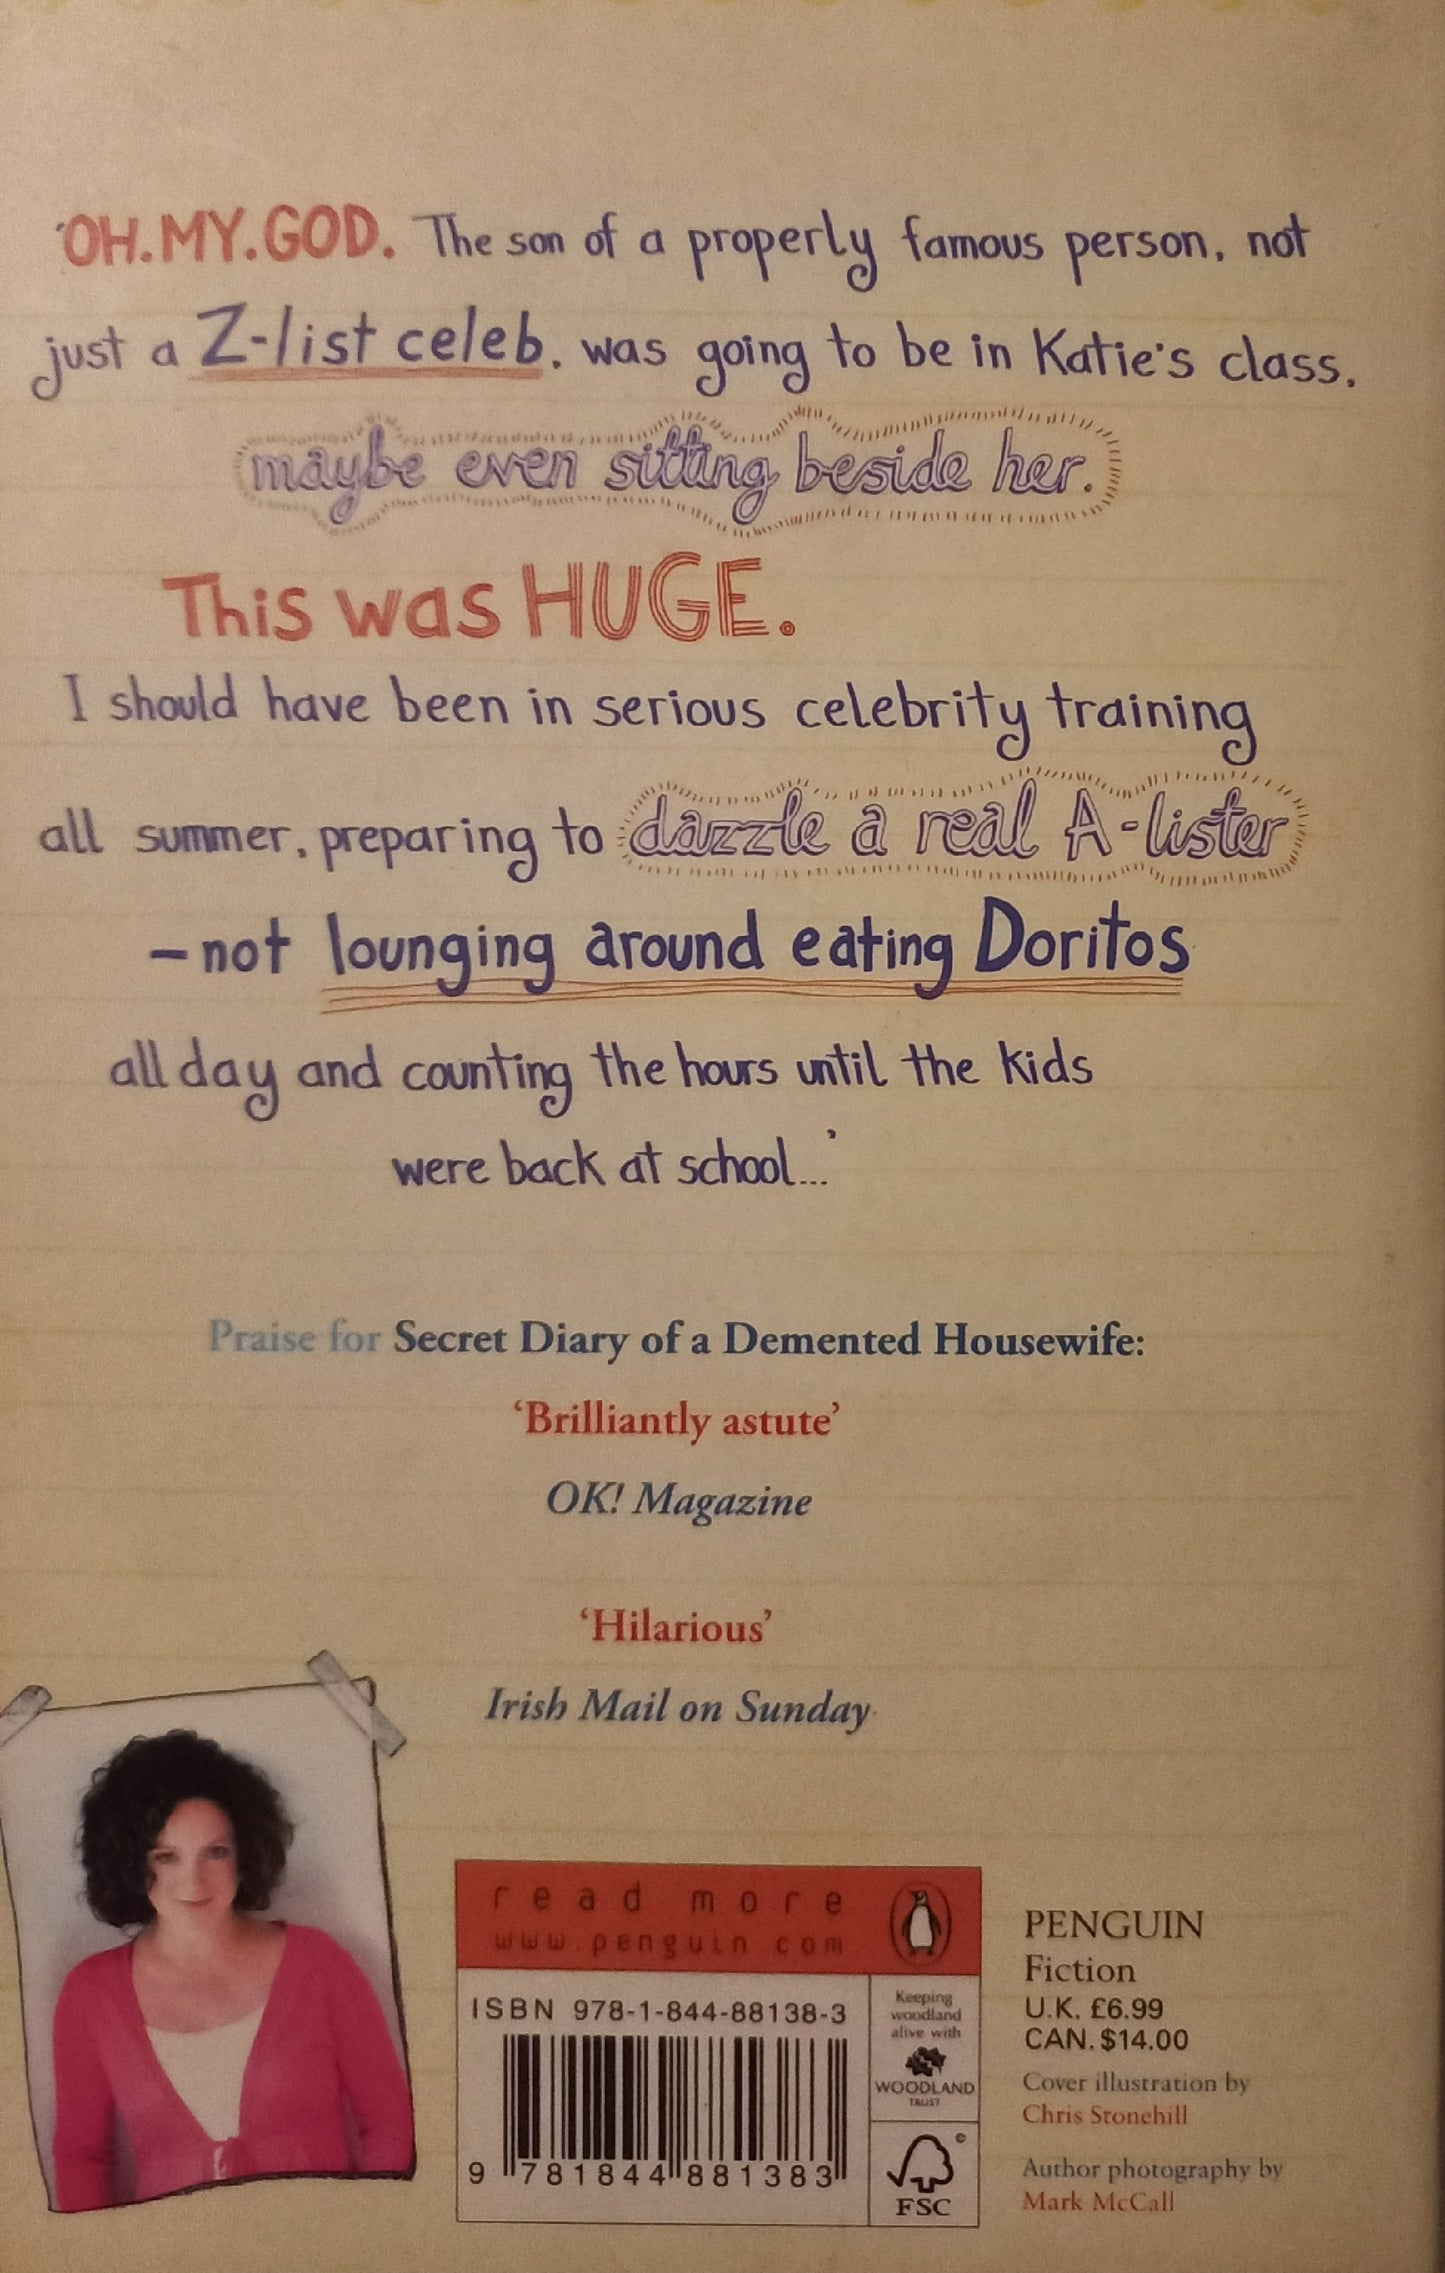 'OH.MY.GOD. The son of a properly famous person, not
just a Z-list celeb, was going to be in Katie's class,
maybe even sitting beside her.
This was HUGE.
I should have been in serious celebrity training
all summer, preparing to dazzle a real A-lister
– not lounging around eating Doritos
all day and counting the hours until the kids
were back at school...'
Praise for Secret Diary of a Demented Housewife:
'Brilliantly astute'
OK! Magazine
'Hilarious'
Irish Mail on Sunday
read more
www.penguin.com
ISBN 978-1-844-88138-3
9 781844 881383
Keeping
woodland
alive with
WOODLAND
TRUST
©
FSC
PENGUIN
Fiction
U.K. £6.99
CAN. $14.00
Cover illustration by
Chris Stonehill
Author photography by
Mark McCall